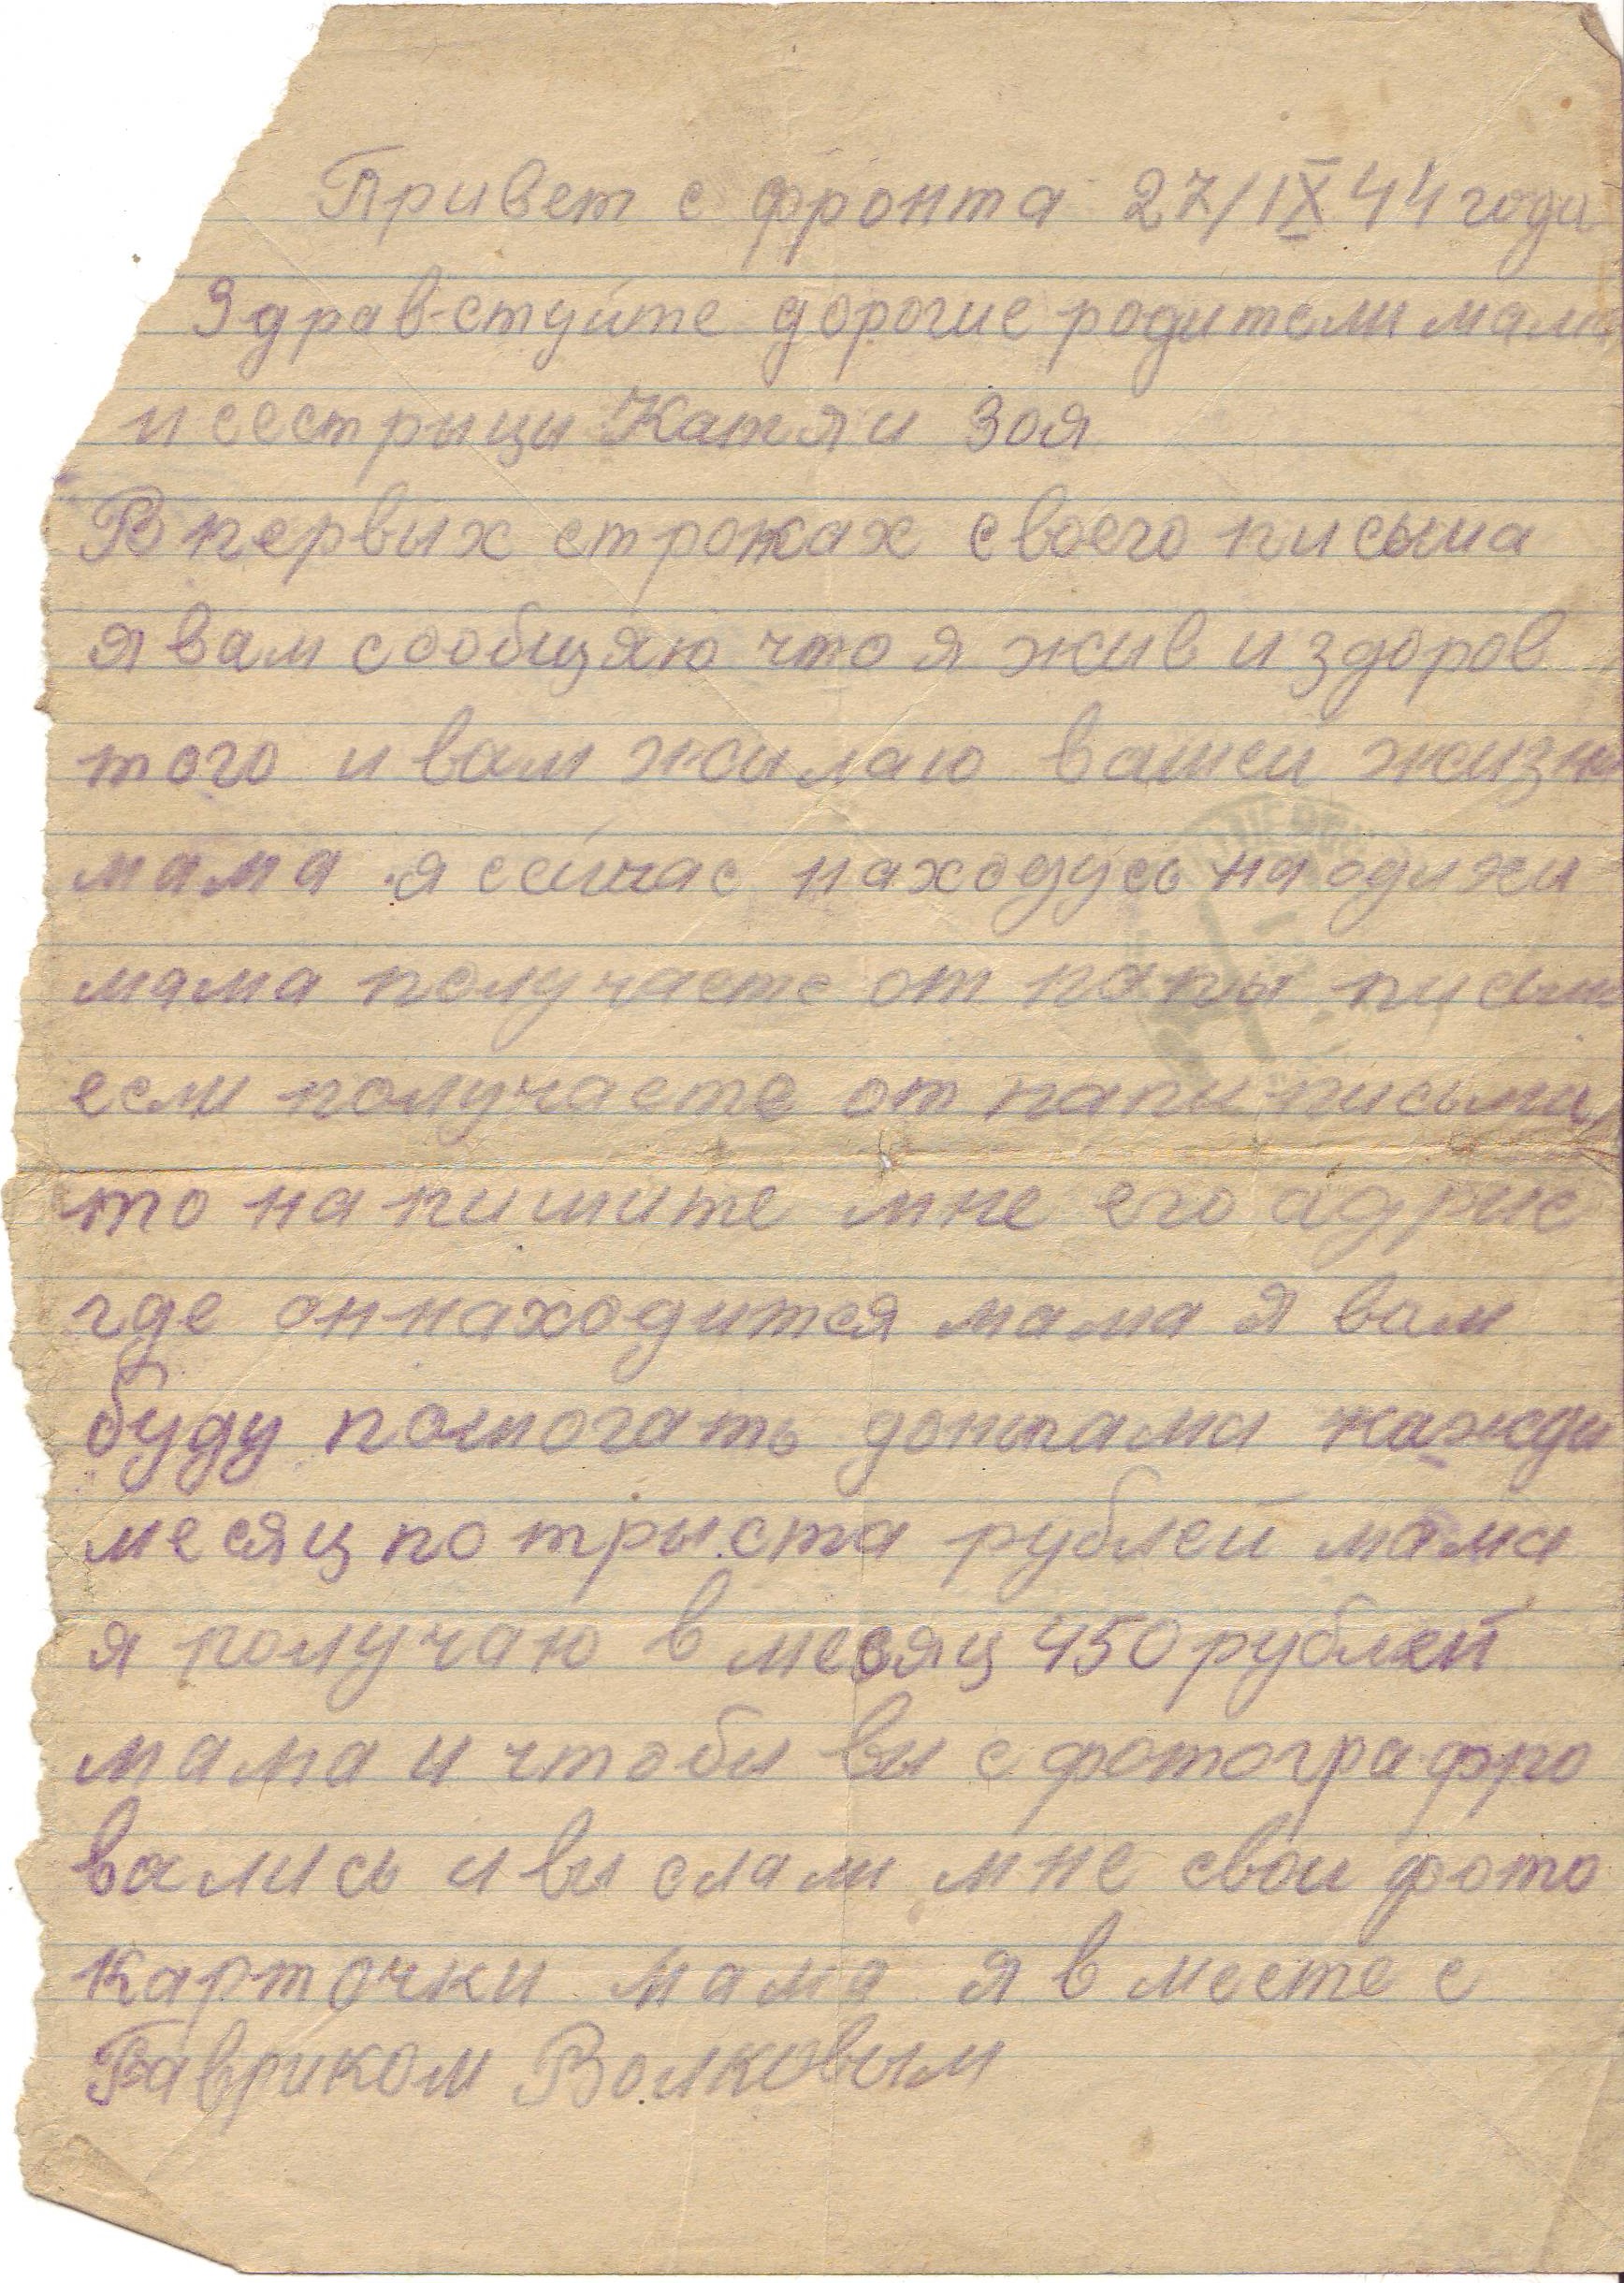 Привет с фронта 27/IX 44 года
Здравствуйте дорогие родители мама
и сестрицы Катя и Зоя
В первых строках своего писыма
я вам сообщяю что я жив и здоров
того и вам жилаю вашей жизни
мама я сейчас находусь на
мама получаете от папы письма
если получаете от папы письма,
то напишите мне его адрис
где он находится мама я вам
буду помогать донгами кажди
месяц по трыста рублей мама
я получаю в месяц 450 рублей
мама и чтоби ви сфотографро
вались и вислали мне свои фото
карточки мама я вместе с
Гавриком Волковым